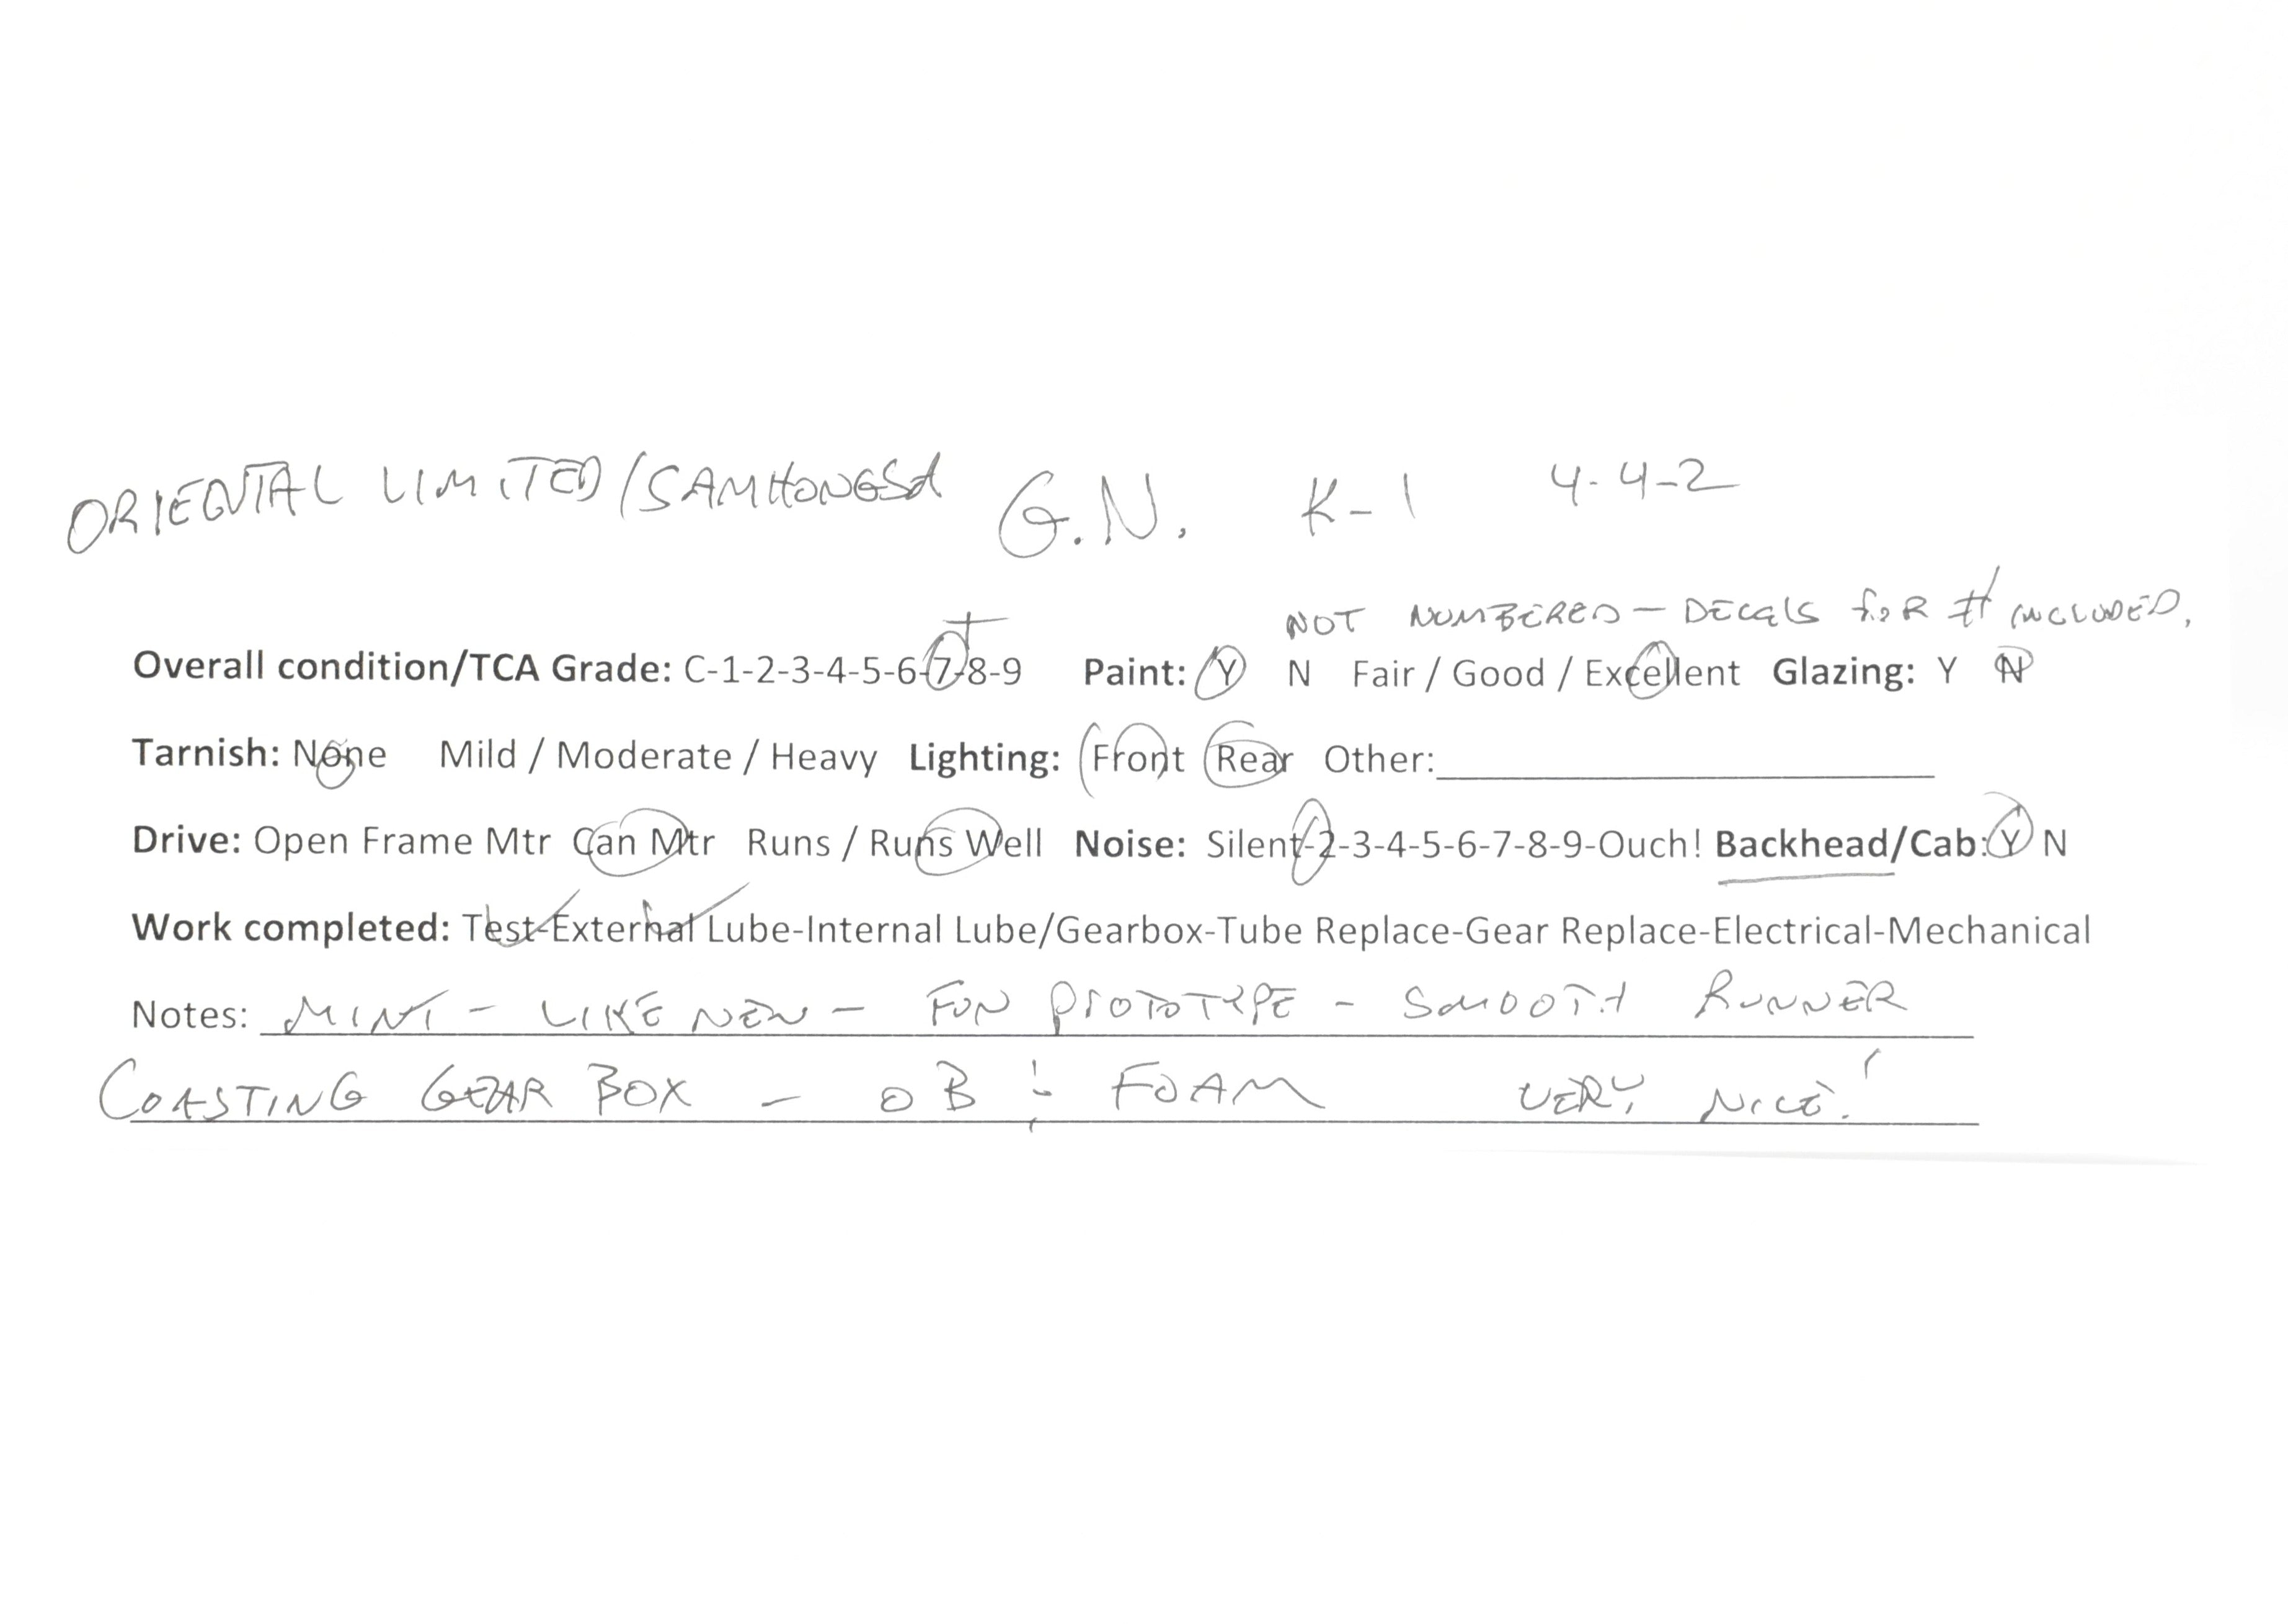 ORIENTAL LIMITED/SAMHONGSA G.N. K-1 4-4-2
NOT NUMBERED - DECALS FOR # INCLUDED.
Overall condition/TCA Grade: C-1-2-3-4-5-6-7+-8-9 Paint: Y N Fair / Good / Excellent Glazing: Y N
Tarnish: None Mild / Moderate / Heavy Lighting: Front Rear Other:
Drive: Open Frame Mtr Can Mtr Runs / Runs Well Noise: Silent-2-3-4-5-6-7-8-9-Ouch! Backhead/Cab: Y N
Work completed: Test-External Lube-Internal Lube/Gearbox-Tube Replace-Gear Replace-Electrical-Mechanical
Notes: MINT - LIKE NEW - FUN PROTOTYPE - SMOOTH RUNNER
COASTING GEAR BOX - OB & FOAM VERY NICE!